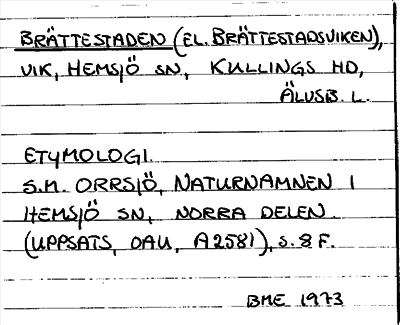 BRÄTTESTADEN (EL. BRÄTTESTADSVIKEN),
VIK, HEMSJÖ SN, KULLINGS HD,
ÄLVSB. L.
ETYMOLOGI.
S.M. ORRSJÖ, NATURNAMNEN I
HEMSJÖ SN, NORRA DELEN.
(UPPSATS, OAU, A2581), S. 8 F.
BME 1973